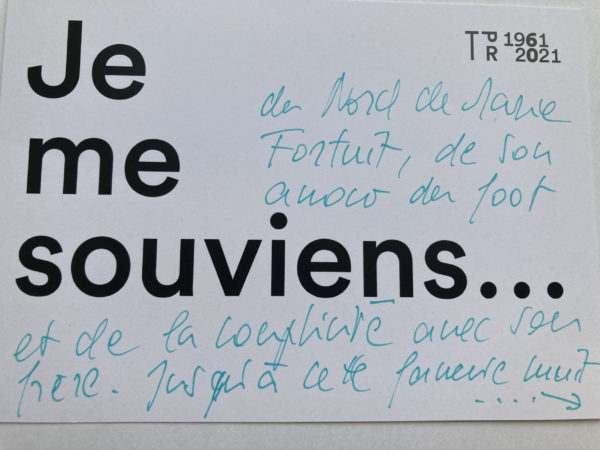 Je
me
souviens...
TPR 1961
2021
du Nord de Marie
Fortuit, de son
amour du foot
et de la complicité avec son
frère. Jusqu'à cette fameuse nuit
....→